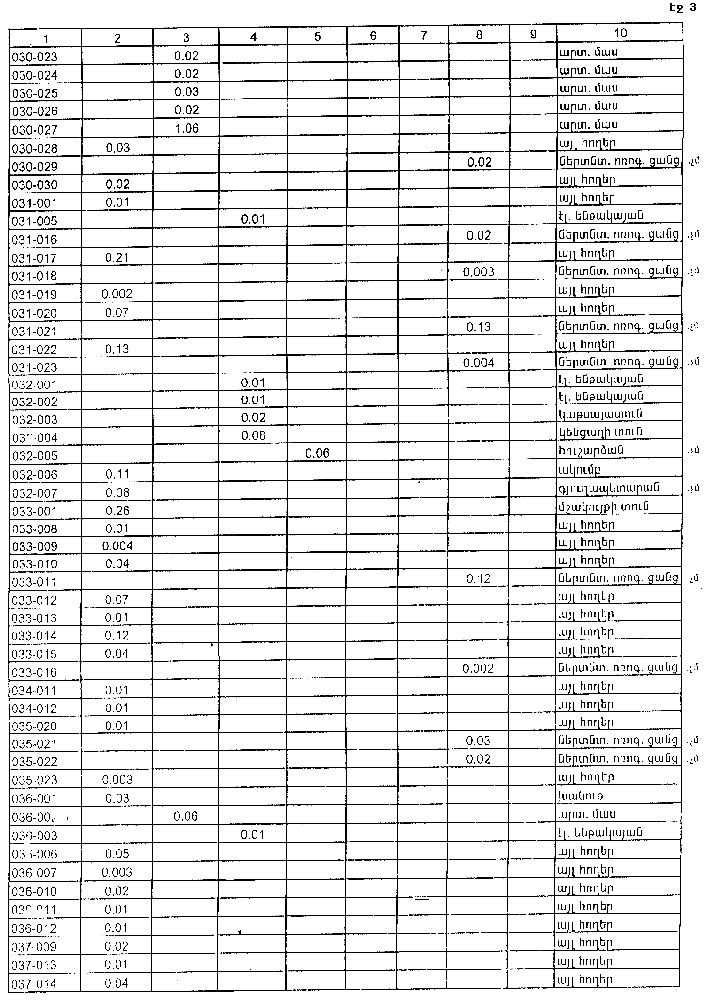 էջ 3
1 2 3 4 5 6 7 8 9 10
030-023 0.02 արտ. մաս
030-024 0.02 արտ. մաս
030-025 0.03 արտ. մաս
030-026 0.02 արտ. մաս
030-027 1.06 արտ. մաս
030-028 0.03 այլ հողեր
030-029 0.02 ներտնտ. ոռոգ. ցանց չմ
030-030 0.02 այլ հողեր
031-001 0.01 այլ հողեր
031-005 0.01 էլ. ենթակայան
031-016 0.02 ներտնտ. ոռոգ. ցանց չմ
031-017 0.21 այլ հողեր
031-018 0.003 ներտնտ. ոռոգ. ցանց չմ
031-019 0.002 այլ հողեր
031-020 0.07 այլ հողեր
031-021 0.13 ներտնտ. ոռոգ. ցանց չմ
031-022 0.13 այլ հողեր
031-023 0.004 ներտնտ. ոռոգ. ցանց չմ
032-001 0.01 էլ. ենթակայան
032-002 0.01 էլ. ենթակայան
032-003 0.02 կաթսայատուն
032-004 0.06 կենցաղի տուն
032-005 0.06 հուշարձան չմ
032-006 0.11 ակումբ
032-007 0.08 գյուղապետարան չմ
033-001 0.26 մշակույթի տուն
033-008 0.01 այլ հողեր
033-009 0.004 այլ հողեր
033-010 0.04 այլ հողեր
033-011 0.12 ներտնտ. ոռոգ. ցանց չմ
033-012 0.07 այլ հողեր
033-013 0.01 այլ հողեր
033-014 0.12 այլ հողեր
033-015 0.04 այլ հողեր
033-016 0.002 ներտնտ. ոռոգ. ցանց չմ
034-011 0.01 այլ հողեր
034-012 0.01 այլ հողեր
035-020 0.01 այլ հողեր
035-021 0.03 ներտնտ. ոռոգ. ցանց չմ
035-022 0.02 ներտնտ. ոռոգ. ցանց չմ
035-023 0.003 այլ հողեր
036-001 0.03 խանութ
036-002 0.06 արտ. մաս
036-003 0.01 էլ. ենթակայան
036-006 0.05 այլ հողեր
036-007 0.003 այլ հողեր
036-010 0.02 այլ հողեր
036-011 0.01 այլ հողեր
036-012 0.01 այլ հողեր
037-009 0.02 այլ հողեր
037-013 0.01 այլ հողեր
037-014 0.04 այլ հողեր